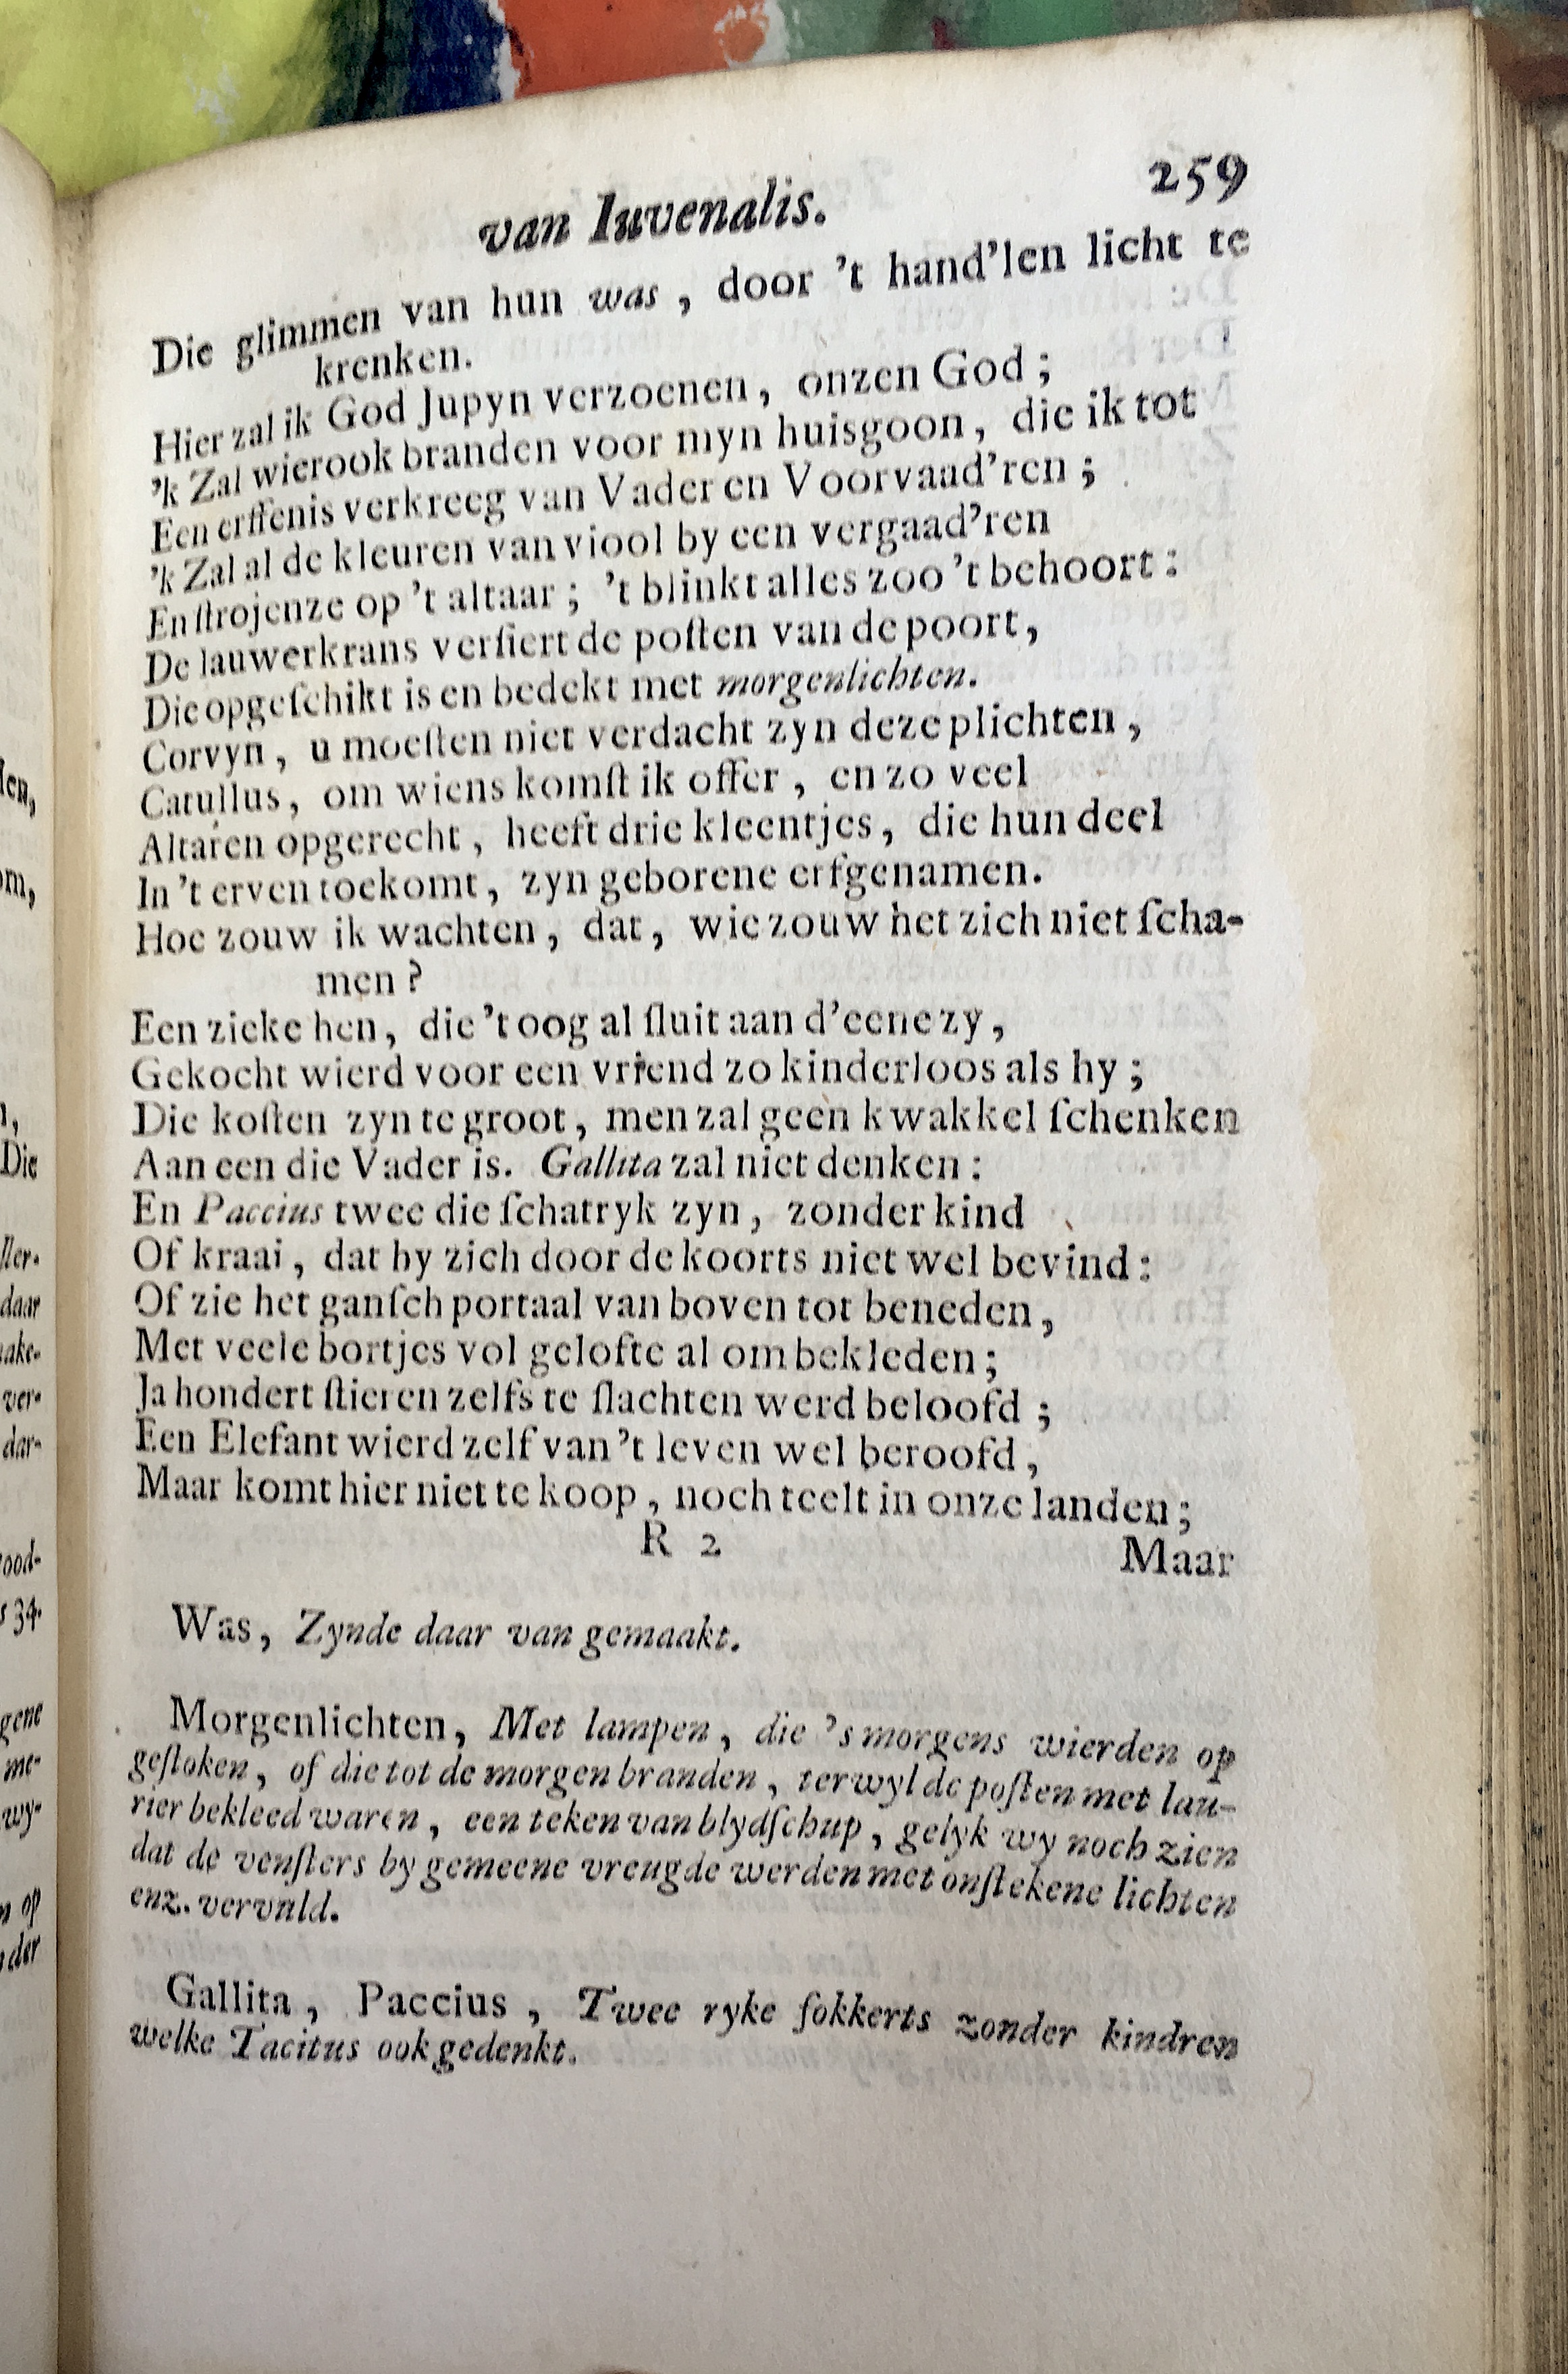 259
van Iuvenalis.
Die glimmen van hun was, door 't hand'len licht te
krenken.
Hier zal ik God Jupyn verzoenen, onzen God;
'k Zal wierook branden voor myn huisgoon, die ik tot
Een erffenis verkreeg van Vader en Voorvaad'ren;
'k Zal al de kleuren van viool by een vergaad'ren
En ſtrojenze op 't altaar; 't blinkt alles zoo 't behoort:
De lauwerkrans verſiert de poſten van de poort,
Die opgeſchikt is en bedekt met morgenlichten.
Corvyn, u moeſten niet verdacht zyn deze plichten,
Catullus, om wiens komſt ik offer, en zo veel
Altaren opgerecht, heeft drie kleentjes, die hun deel
In 't erven toekomt, zyn geborene erfgenamen.
Hoe zouw ik wachten, dat, wie zouw het zich niet ſcha-
men?
Een zieke hen, die 't oog al ſluit aan d'eene zy,
Gekocht wierd voor een vriend zo kinderloos als hy;
Die koſten zyn te groot, men zal geen kwakkel ſchenken
Aan een die Vader is. Gallita zal niet denken:
En Paccius twee die ſchatryk zyn, zonder kind
Of kraai, dat hy zich door de koorts niet wel bevind:
Of zie het ganſch portaal van boven tot beneden,
Met veele bortjes vol gelofte al ombekleden;
Ja hondert ſtieren zelfs te ſlachten werd beloofd;
Een Elefant wierd zelf van 't leven wel beroofd,
Maar komt hier niet te koop, noch teelt in onze landen;
R 2
Maar
Was, Zynde daar van gemaakt.
Morgenlichten, Met lampen, die 's morgens wierden op
geſtoken, of die tot de morgen branden, terwyl de poſten met lau-
rier bekleed waren, een teken van blydſchup, gelyk wy noch zien
dat de venſters by gemeene vreugde werden met onſtekene lichten
enz. vervuld.
Gallita, Paccius, Twee ryke ſokkerts zonder kindren
welke Tacitus ook gedenkt.
len,
om,
Die
daar
ver-
dar-
ood-
s 34.
gene
me-
wy-
n op
der